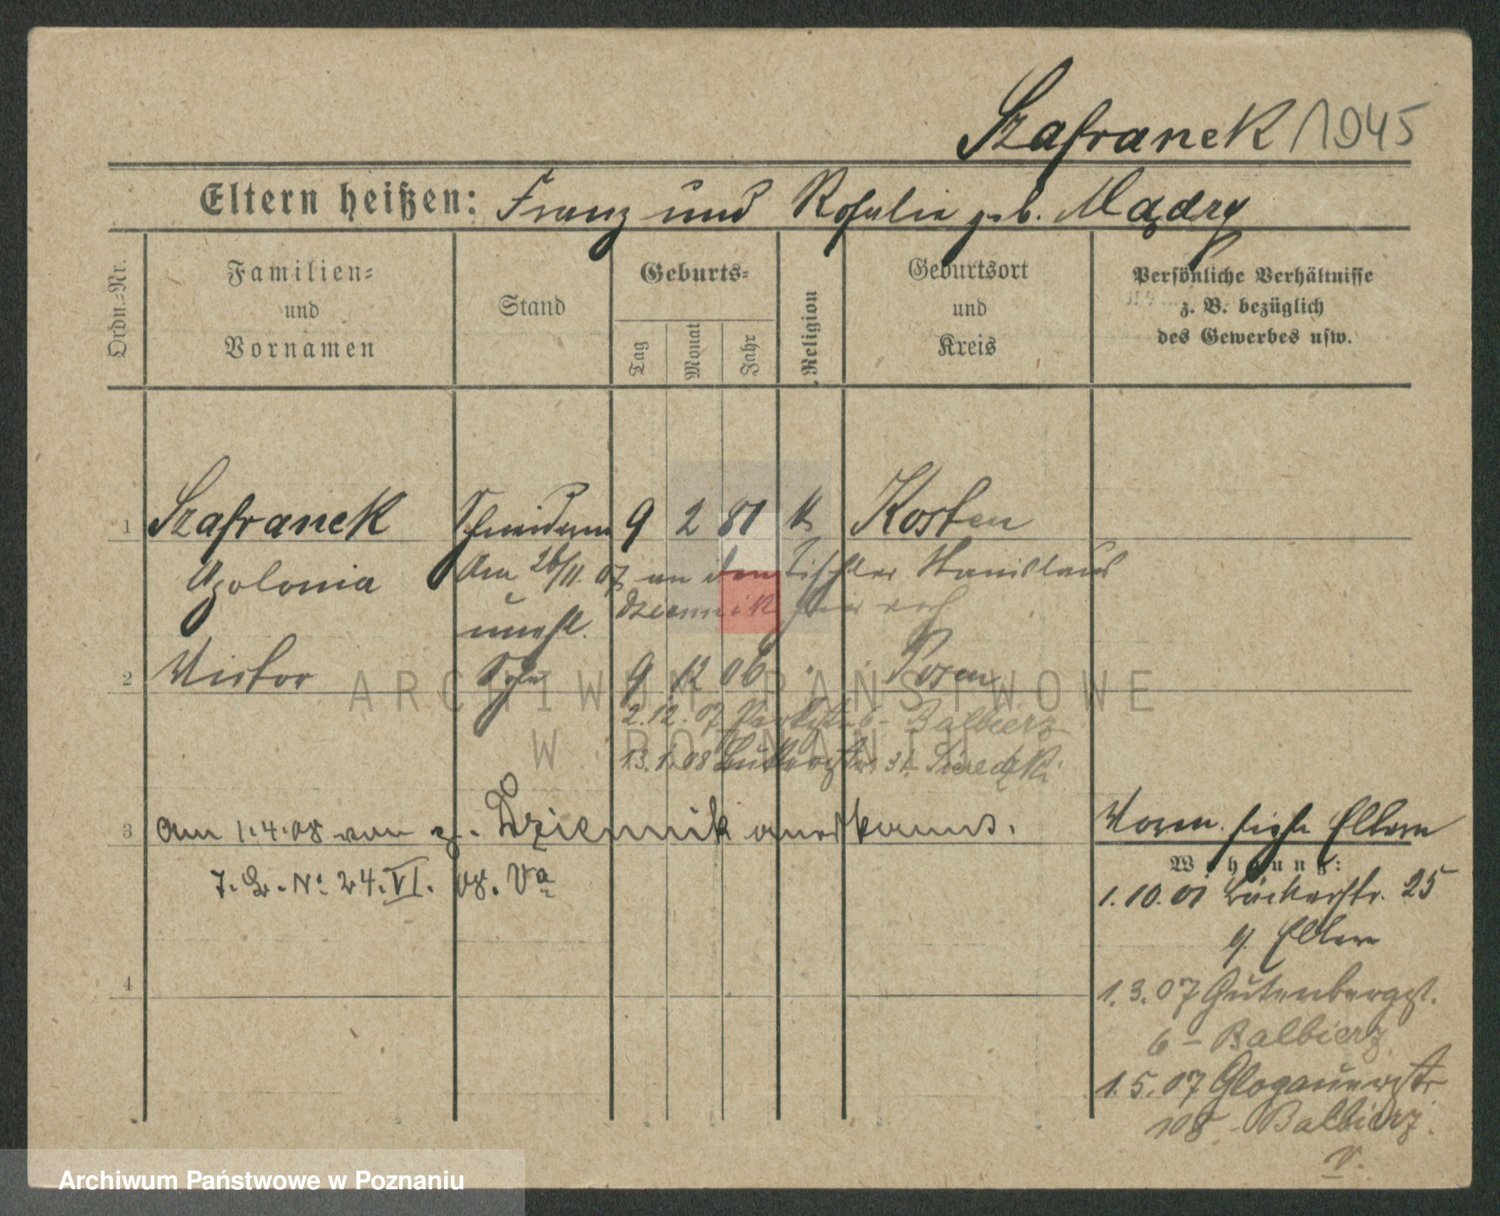 Szafranek 1945
Eltern heißen: Franz und Rosalie geb. Mądry
Ordn.=Nr.
Familien=
und
Vornamen
Stand
Geburts=
Tag
Monat
Jahr
Religion
Geburtsort
und
Kreis
Persönliche Verhältnisse
z. B. bezüglich
des Gewerbes usw.
1 Szafranek Schneiderin 9 2 81 k Kosten
Apolonia Am 26/11. 07 an den Tischler Stanislaus
Dziennik hier verh
unehl.
2 Victor Sohn 9 12 06 Posen
2.12.07 6 - Balbierz
13.1.08 31. Sieredzki
3 am 1.4.08 von g. Dziennik anerkannt.
J. L. Nr. 24. VI. 08. Va
Vorm. siehe Eltern
Wohnung:
1.10.01 Bäckerstr. 25
b. Eltern
4
1.3.07 Gutenbergst.
6 - Balbierz
1.5.07 Glogauerstr
108 - Balbierz.
v.
ARCHIWUM PAŃSTWOWE
W POZNANIU
Archiwum Państwowe w Poznaniu